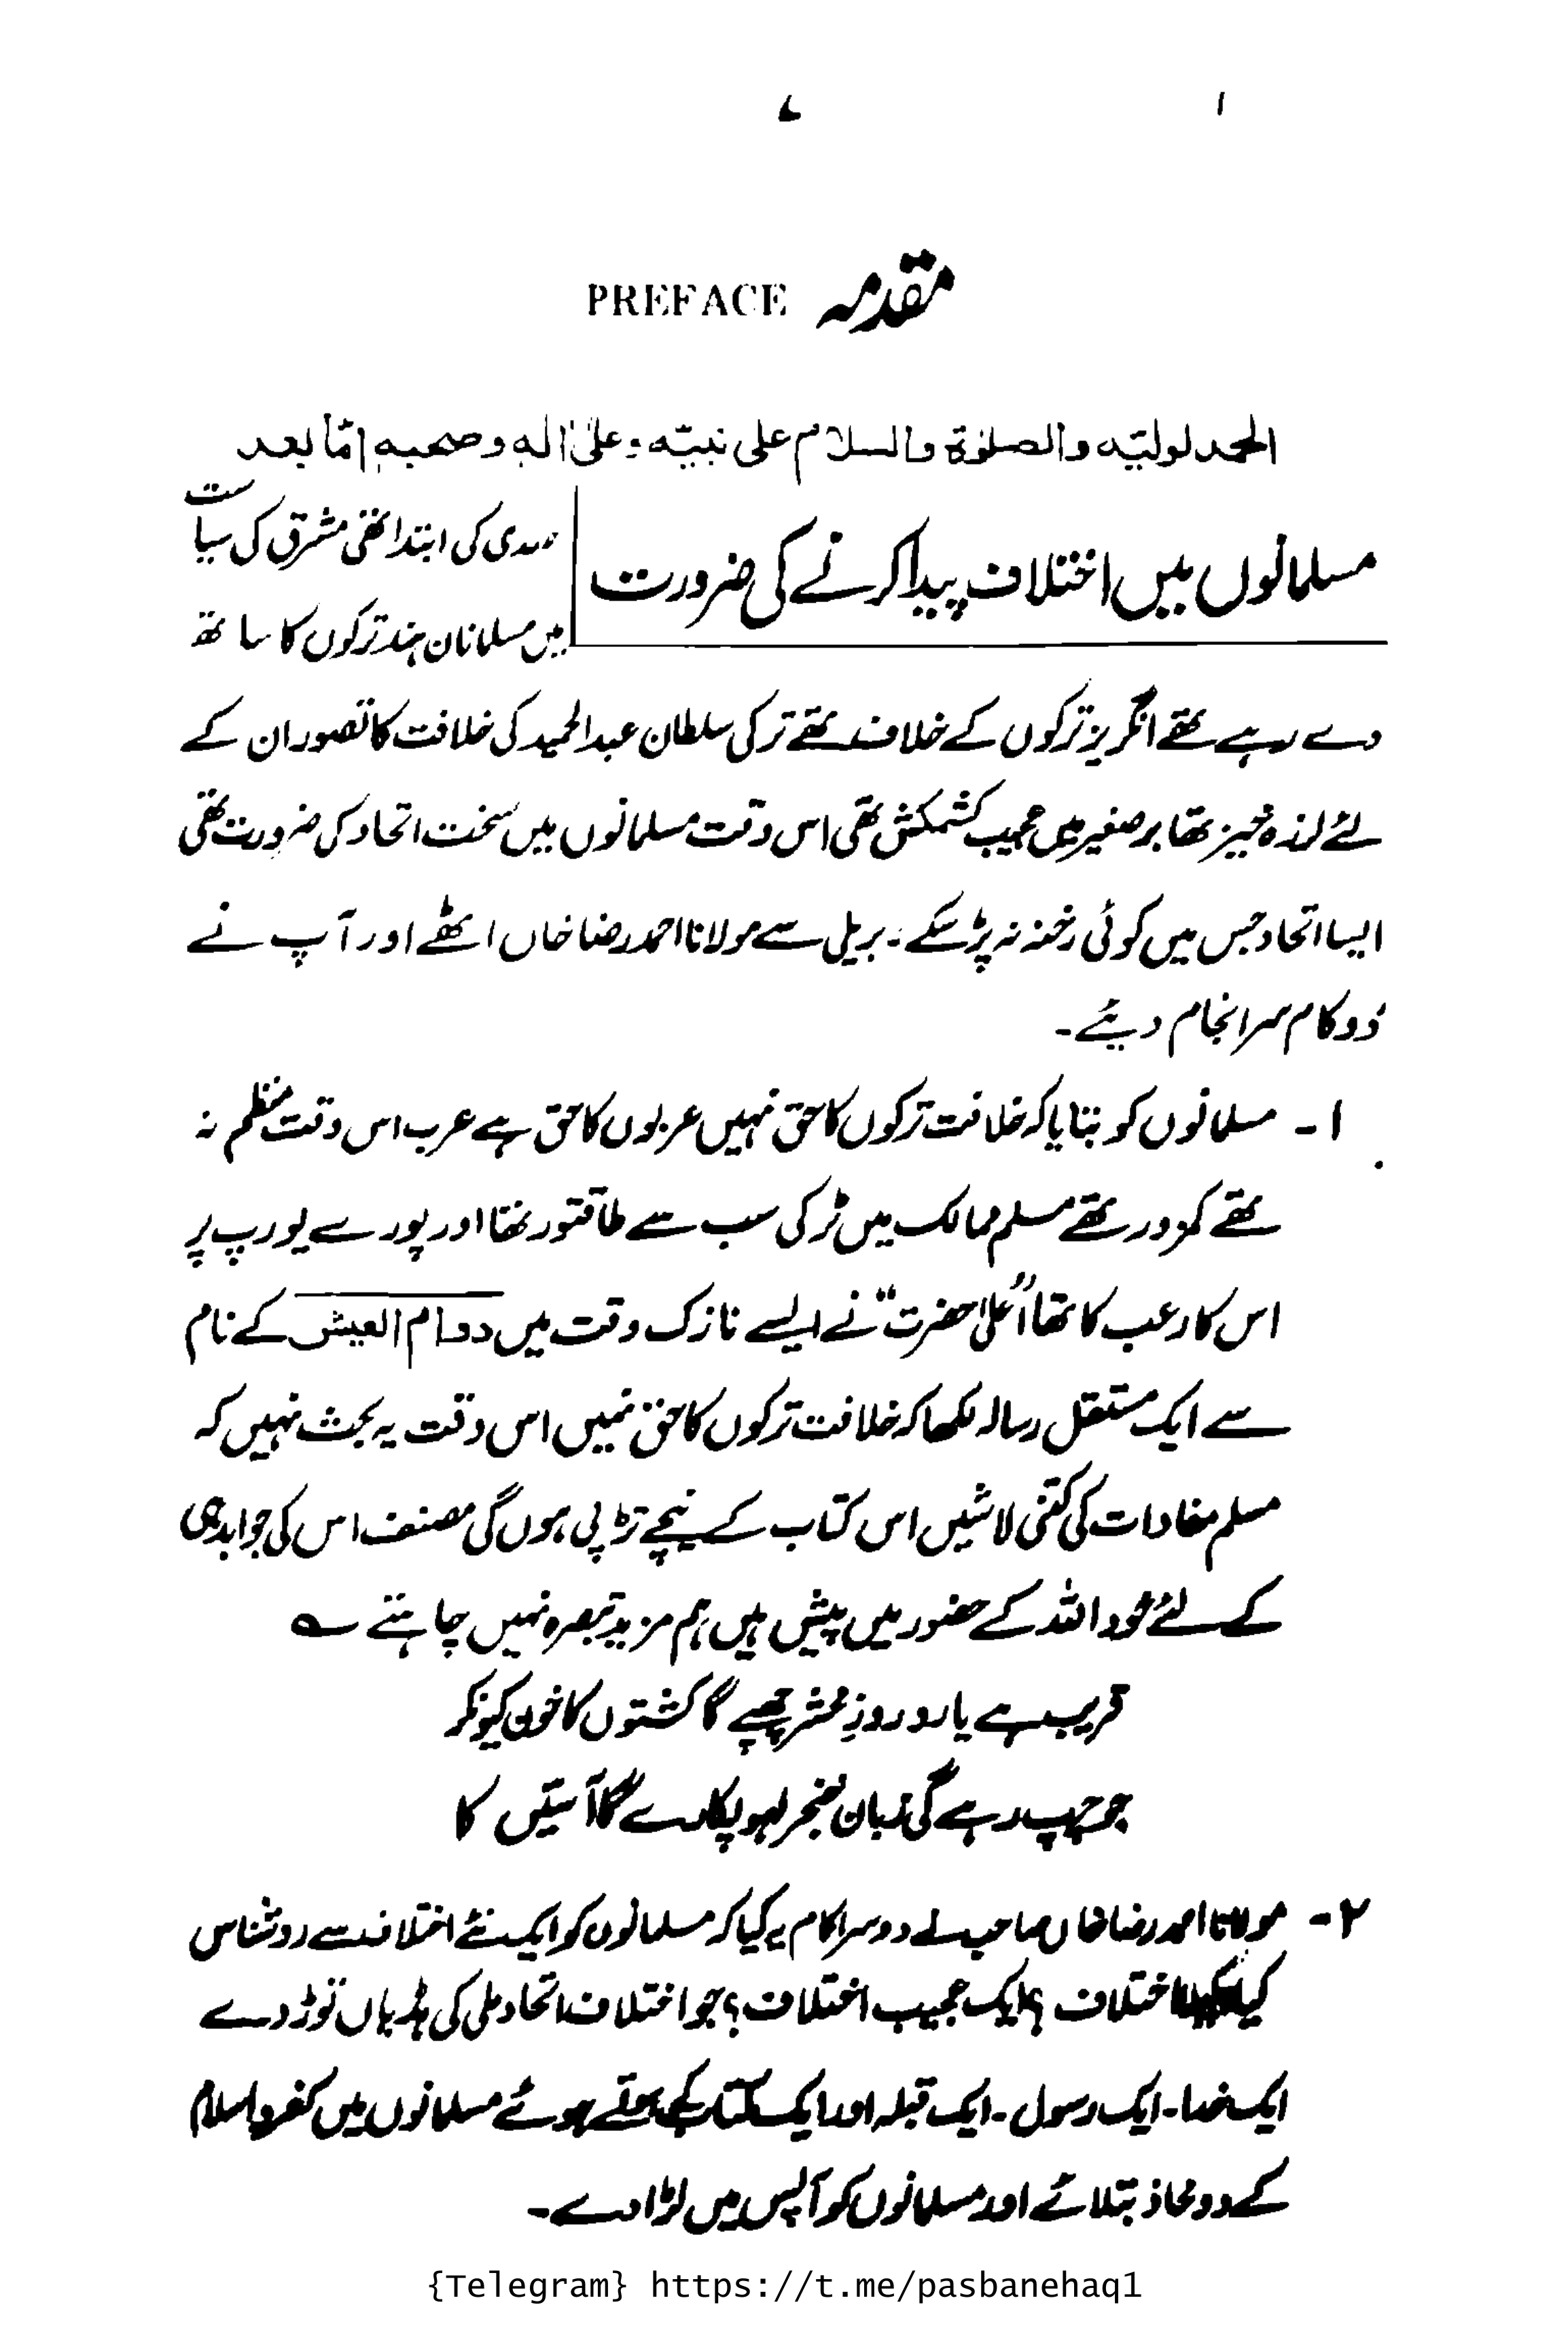 ۷
۱
مقدمہ PREFACE
الحمد لولیّہ والصلوٰۃ والسلام علی نبیّہ وعلیٰ اٰلہٖ وصحبہٖ امّا بعد
مسلمانوں میں اختلاف پیدا کرنے کی ضرورت
صدی کی ابتدا تھی مشرق کی سیاست
میں مسلمانان ہند ترکوں کا ساتھ
دے رہے تھے انگریز ترکوں کے خلاف تھے ترکی سلطان عبدالحمید کی خلافت کا تصور ان کے
لئے لرزہ خیز تھا برصغیر میں عجیب کشمکش تھی اس وقت مسلمانوں میں سخت اتحاد کی ضرورت تھی
ایسا اتحاد جس میں کوئی رخنہ نہ پڑ سکے۔ بریلی سے مولانا احمد رضا خاں اٹھے اور آپ نے
دو کام سرانجام دیئے۔
۱۔ مسلمانوں کو بتایا کہ خلافت ترکوں کا حق نہیں عربوں کا حق ہے عرب اس وقت منظم نہ
تھے کمزور تھے مسلم ممالک میں ٹرکی سب سے طاقتور تھا اور پورے یورپ پر
اس کا رعب کا تھا "اعلیٰ حضرت" نے ایسے نازک وقت میں دوام العیش کے نام
سے ایک مستقل رسالہ لکھا کہ خلافت ترکوں کا حق نہیں اس وقت یہ بحث نہیں کہ
مسلم مفادات کی کتنی لاشیں اس کتاب کے نیچے تڑپی ہوں گی مصنف اس کی جوابدہی
کے لئے خود اللہ کے حضور میں پیش ہیں ہم مزید تبصرہ نہیں چاہتے ؎
قریب ہے یارو روزِ محشر چھپے گا کشتوں کا خون کیونکر
جو چپ رہے گی زبان خنجر لہو پکارے گا آستیں کا
۲۔ مولانا احمد رضا خاں صاحب نے دوسرا کام یہ کیا کہ مسلمانوں کو ایک نئے اختلاف سے روشناس
کیا اختلاف ؟ ایک عجیب اختلاف ؟ جو اختلاف اتحاد ملی کی ہڈیاں توڑ دے
ایک خدا۔ ایک رسول۔ ایک قبلہ اور ایک کتاب کے ہوتے ہوئے مسلمانوں میں کفر و اسلام
کے دو محاذ بتلائے اور مسلمانوں کو آپس میں لڑا دے۔
{Telegram} https://t.me/pasbanehaq1